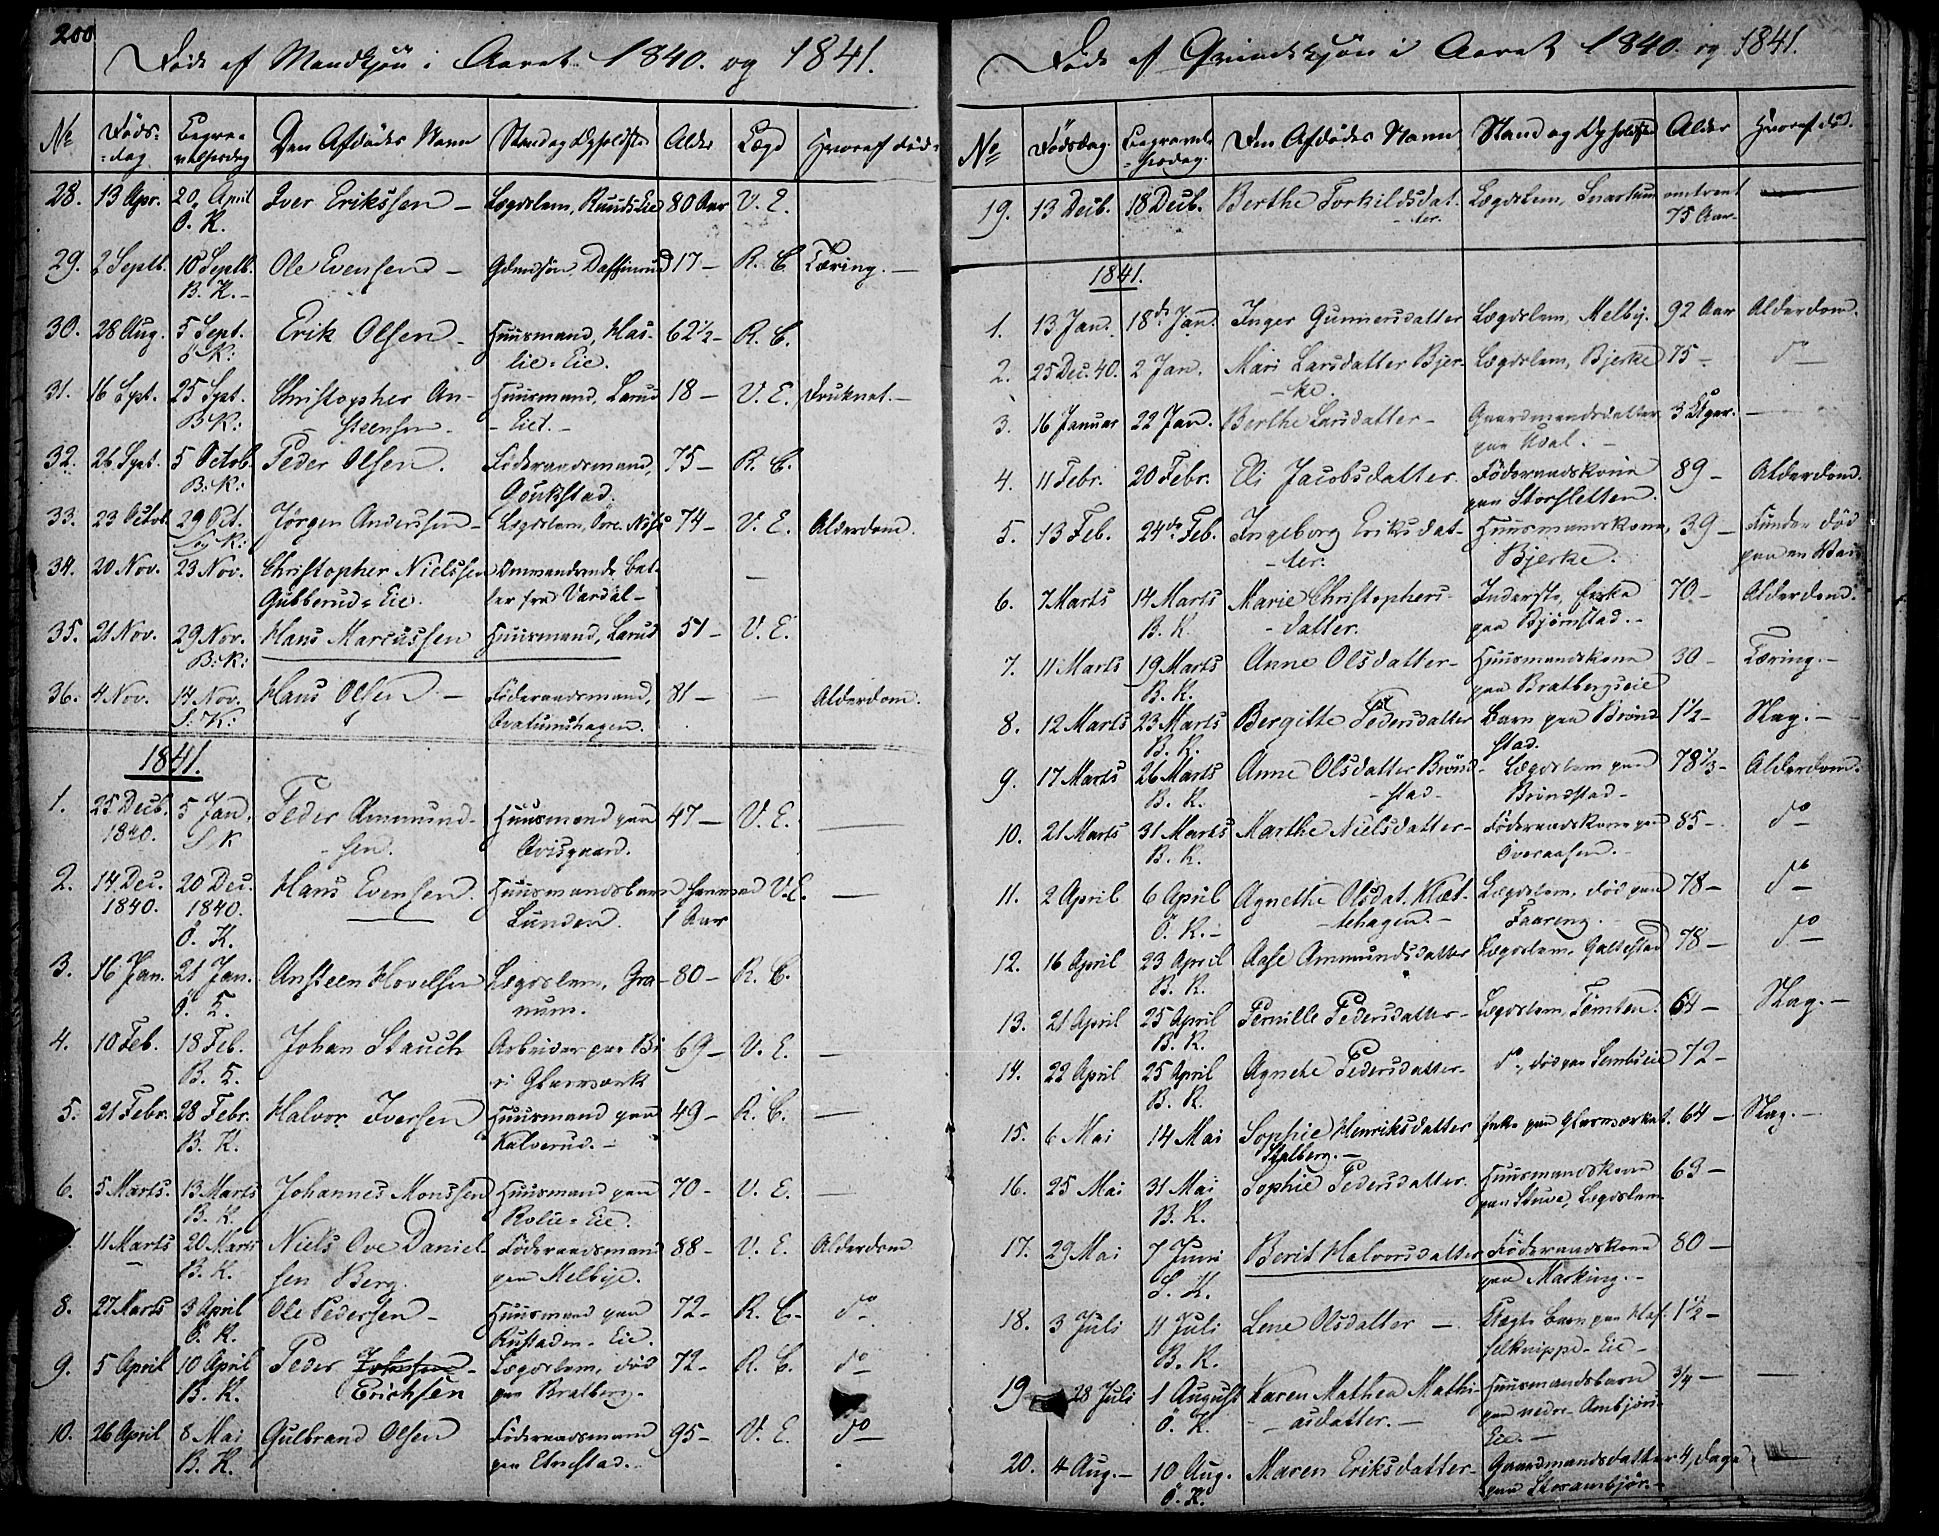 200
Døde af Mandkjøn i Aaret 1840. og 1841.
No Døds-dag Begravelsesdag Den Afdødes Navn Stand og Opholdsted Alder Lægd Hvoraf død.
28. 13 Apr. 20 April Iver Erikssen - Lægdslem, Ruuds Eie 80 Aar V. E.
Ö. K.
29. 2 Septb. 10 Septb. Ole Evensen - 17 - R. C. Tæring. -
B. K. -
30. 28 Aug. 5 Sept. Erik Olsen - Huusmand, Has- 62½ - R. C.
Ö K: lie-Eie.
31. 16 Sept. 25 Sept. Christopher An- Huusmand, Larud 18 - V. E. Druknet. -
B K: steensen. - Eiet. -
32. 26 Sept. 5 Octob. Peder Olsen. Föderaadsmand, 75 - R. C.
B: K:
33. 23 Octob. 29 Oct. Jörgen Anderssen - Lægdslem, 74 - V. E. Alderdom.
K:
34. 20 Nov. 23 Nov. Christopher Nielssen Omvandrende Bet- -
Gubberud-Eie. ler fra Vardal -
35. 21 Nov. 29 Nov. Hans Marcussen Huusmand, Larud 51 - V. E.
B: K:
36. 4 Nov. 14 Nov. Hans Olsen. - Föderaadsmand, 81 - - Alderdom.
S: K:
1841.
1. 25 Decb. 5 Jan. Peder Ammund- Huusmand paa 47 - V. E. -
1840. S K sen.
2. 14 Dec. 20 Dec. Hans Evensen. Huusmandsbarn V. E. -
1840. 1840. Lunden. 1 Aar
Ö. K.
3. 16 Jan. 21 Jan. Ansteen Hovelsen Lægdslem, Gra- 80 - R. C.
num.
4. 10 Feb. 18 Feb. Johan Stauch Arbeider paa Bi- 69 - V. E. -
B. ri Glasværk
5. 21 Febr. 28 Febr. Halvor Iversen Huusmand paa 49 - R. C. -
B. K. Kalverud. -
6. 5 Marts. 13 Marts Johannes Monssen Huusmand paa 70 - V. E. -
B. K. Eie.
11 Marts 20 Marts Niels Ove Daniel Föderaadsmand 88 - V. E. Alderdom
B. K. sen Berg. paa Melbye.
8. 27 Marts 3 April Ole Pedersen - Huusmand paa 72 - R. C. - do
Ö. K. Rustaden-Eie.
9. 5 April 10 April Peder Johnsen - Lægdslem, död 72 - R. C. do
B. K. Erichsen paa Bratberg.
10. 26 April 8 Mai Gulbrand Olsen Föderaadsmand 95 - V. E. do
B. K.
Døde af Qvindekjøn i Aaret 1840 og 1841.
No Dödsdag. Begravelsesdag. Den Afdödes Navn Stand og Opholdsted Alder Hvoraf död.
19. 13 Decb. 18 Decb. Berthe Torkildsdat- Lægdslem, omtrent -
ter. 75 Aar -
1841.
1. 13 Jan. 18de Jan. Inger Gunnersdatter Lægdslem, Melby. 92 Aar Alderdom.
2. 25 Dec. 40. 2 Jan. Mari Larsdatter Bjer- Lægdslem, Bjerke 75 - do
ke.
3. 16 Januar 22 Jan. Berthe Larsdatter - Gaardmandsdatter 3 -
paa -
4. 11 Febr. 20 Febr. Eli Jacobsdatter. Föderaadskone 89 - Alderdom.
paa Storsletten.
5. 13 Feb. 24de Feb. Ingeborg Eriksdat- Huusmandskone, 39 - Funden död
ter. Bjerke. paa en Vei
6. 7 Marts 14 Marts Marie Christophers- Inderste, Enke 70 - Alderdom.
B. K. datter. paa Björnstad. -
7. 11 Marts 19 Marts Anne Olsdatter - Huusmandskone 30 - Tæring. -
B. K. paa Bratbergseie
8. 12 Marts 23 Marts Bergitte Pedersdatter Barn paa Brönd- 1½ - Slag. -
B. K. stad.
9. 17 Marts 26 Marts Anne Olsdatter Brönd- Lægdslem paa 78⅓ - Alderdom.
B. K. stad - Bröndstad -
10. 21 Marts 31 Marts Marthe Nielsdatter - Föderaadskone paa 85 - do
B. K. Överaasen. -
11. 2 April 6 April Agnethe Olsdat. Klæt- Lægdslem, död paa 78 - do
Ö. K. - tehagen. - Faareng. -
12. 16 April 23 April Aase Ammundsdatter Lægdslem, Galtestad 78 - do
B. K.
13. 21 April 25 April Pernille Pedersdatter - Lægdslem, Tömten. 64 - Slag. -
B. K.
14. 22 April 25 April Agnete Pedersdatter. do, död paa 72 -
B. K.
15. 6 Mai 14 Mai Sophie Henriksdatter Enke paa Glasværket. 64 - Slag. -
Stalberg. -
16. 25 Mai 31 Mai Sophie Pedersdatter. Huusmandskone 63 -
B. K. paa Lægdslem
17. 29 Mai 7 Juni Berit Halvorsdatter Föderaadskone 80 -
S. K. paa Marking. -
18. 3 Juli 11 Juli Lene Olsdatter - Uægte Barn paa Has- 1½ -
B. K. selknippe-Eie -
19 28 Juli 1 August Karen Mathea Mathi- Huusmandsbarn ¾ - -
Ö. K. asdatter. - paa nedre Ambjör-
Eie. -
20. 4 Aug. - 10 Aug. Maren Eriksdatter - Gaardmandsdatter 4 dage
Ö. K. paa Storambjör. -